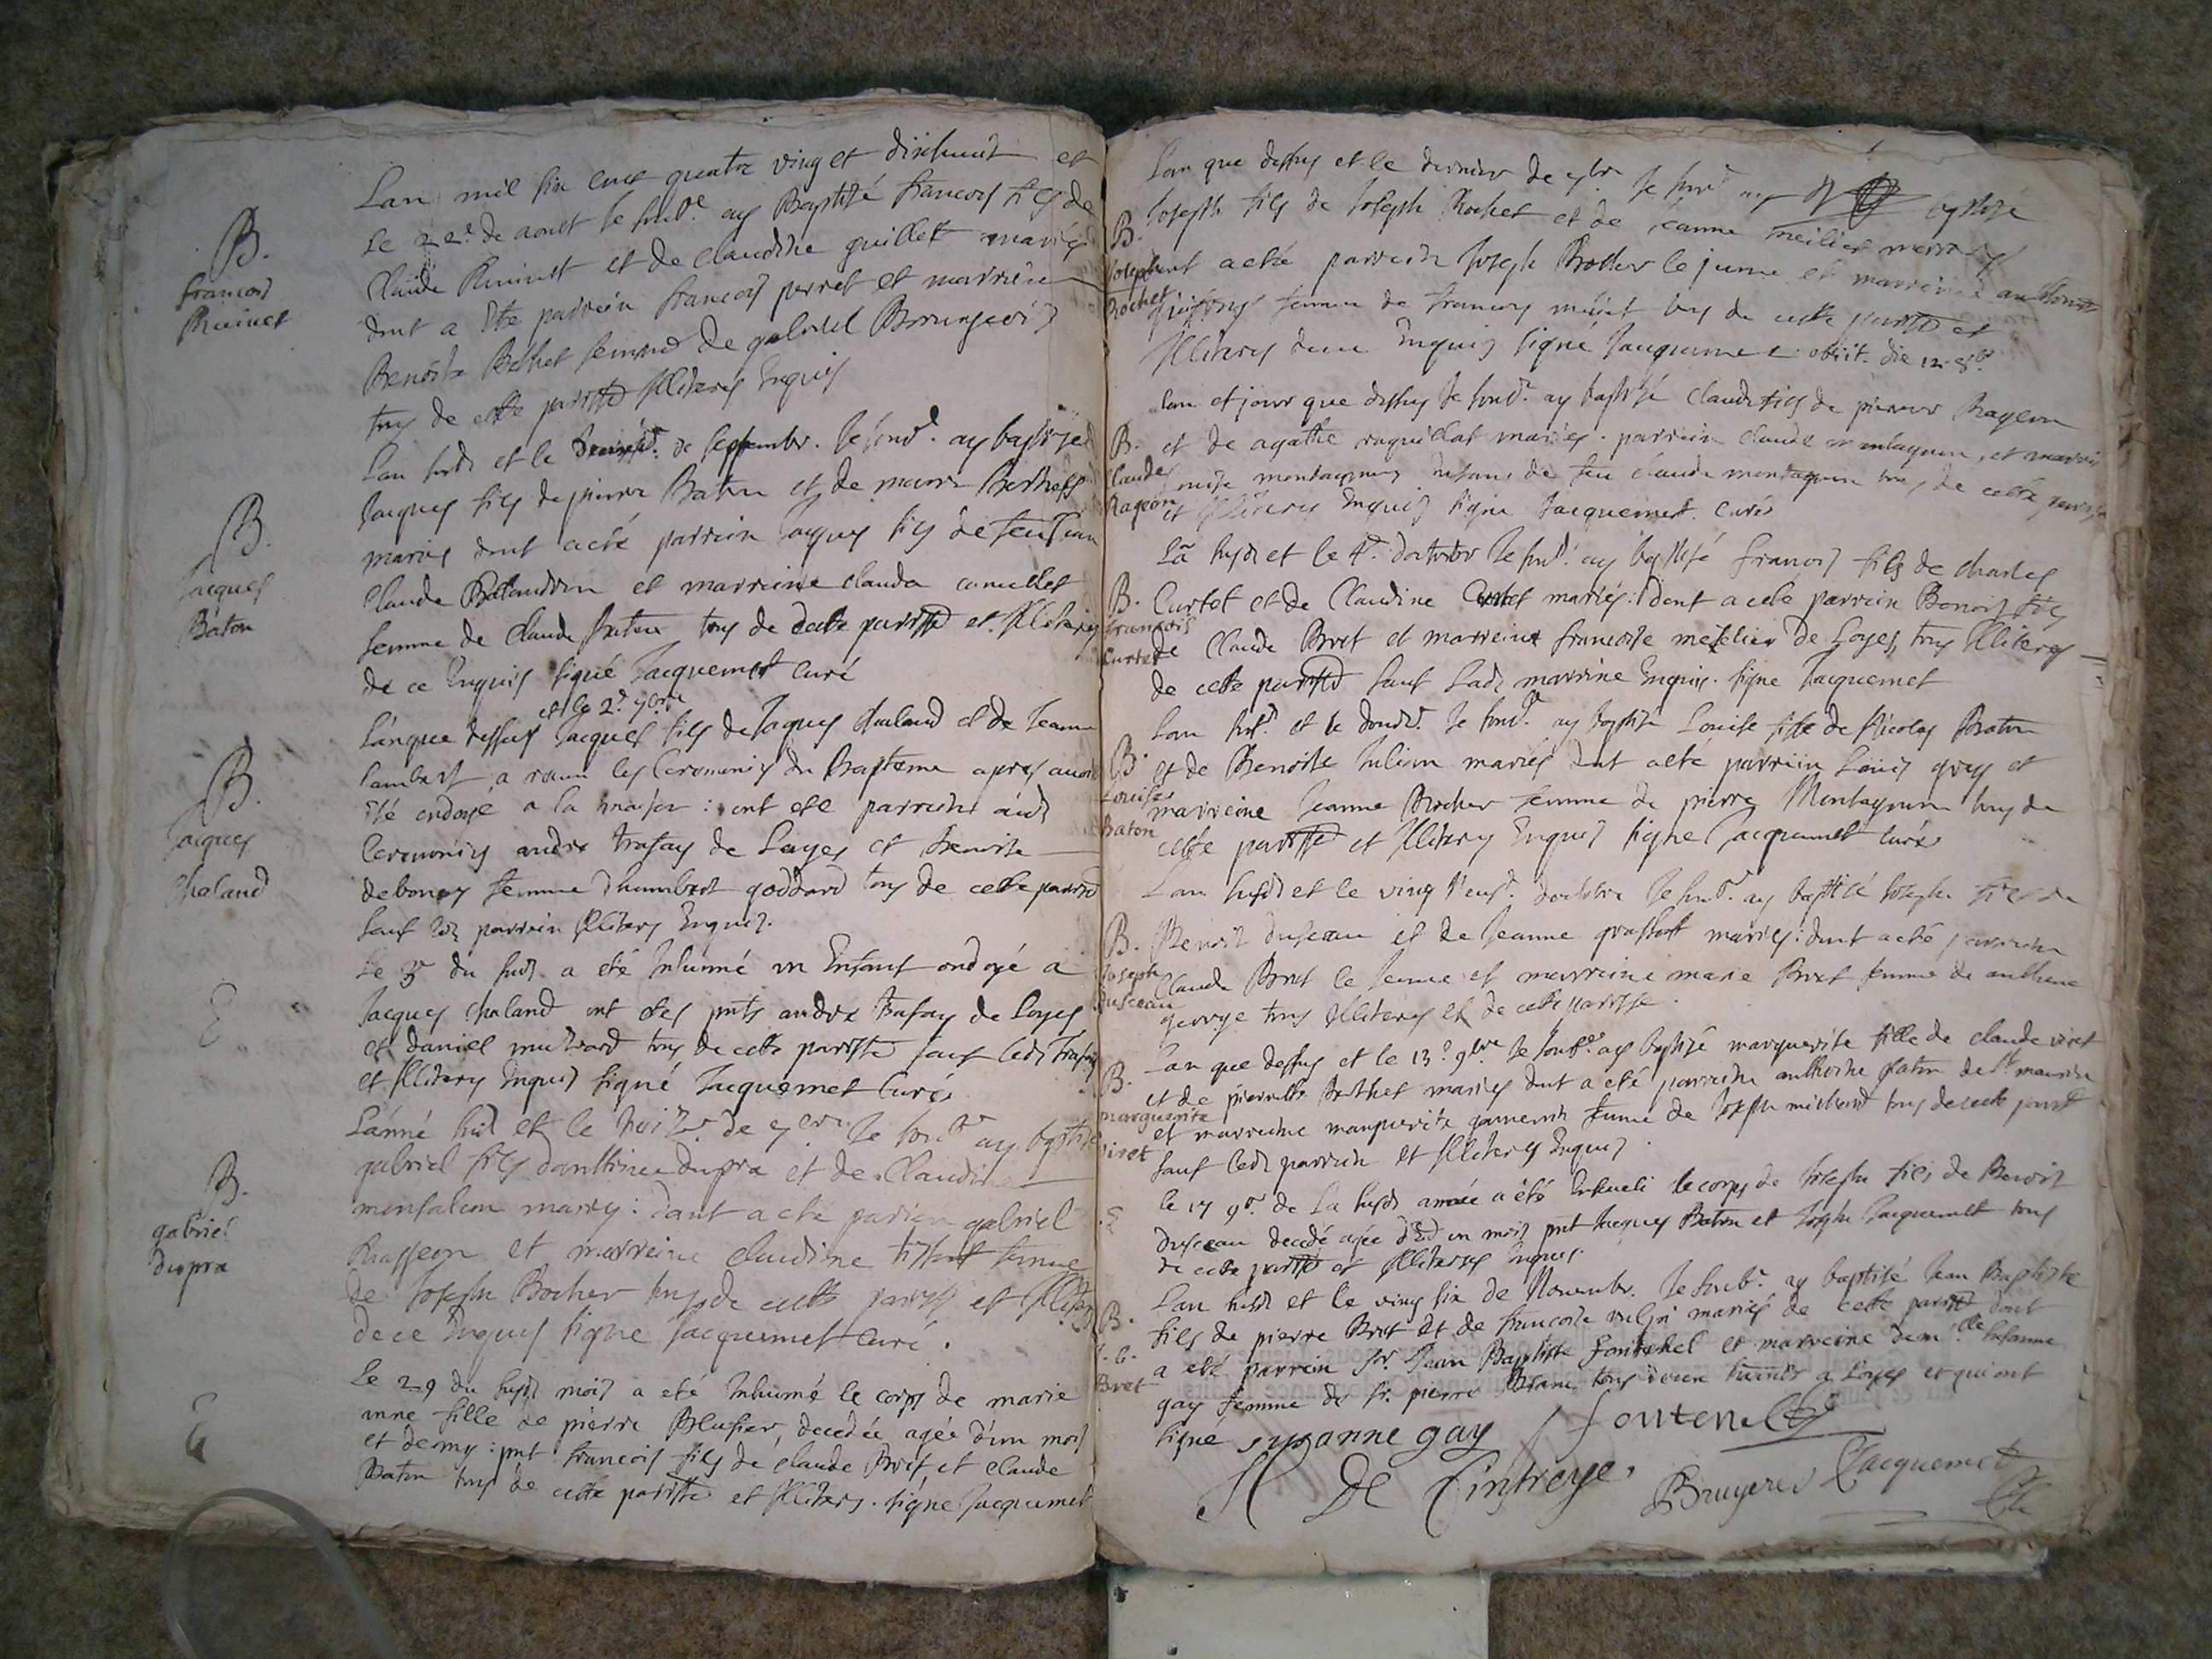 Lan mil six cens quatre ving et dixhuit et
le 22e. de aoust Je soubse. ay Baptisé francois fils de
B.
francois
Ruinet
Claude Ruinet et de claudine guillet mariés
dont a ête parrein francois perret et marreine
Benoite Bethet femme de gabriel
tous de cette parisse Illiteres Enquis
Lan susd et le de septembr. Je soubd. ay baptisé
B.
Jacques
Baton
Jacques fils de pierre Baton et de marie
mariés dont a eté parrein Jaques fils de feu Jean
Claude et marreine clauda
femme de Claude Baton tous de cette parisse et Illiteres
de ce Enquis signé Jacquemet Curé
et le 2e. 7bre
Lánque dessus Jacques fils de Jaques Chaland et de Jeanne
B.
Jacques
Chaland
Lambert a receu les Ceremonies du Baptême apres avoir
été ondoyé a la maison : ont eté parreins aud
Ceremonies andre trafay de Loyes et Benoite
debonay femme dhumbert goddard tous de cette parisse
sauf led parrein Illiteres Enquis.
E
Le 3e du susd a eté Inhumé un Enfant ondoyé a
Jacques chaland ont eté pnts andre trafay de Loyes
et daniel michard tous de cette parisse sauf led trafay
et Illiteres Enquis signé Jacquemet Curé
Lánné susd et le de 7bre Je soubse ay baptisé
B.
gabriel
dupra
gabriel fils danthoine Dupra et de Claudine
montalion mariés : dont a eté parein gabriel
et marreine claudine tissot femme
de Joseph Bocher tous de cette parisse et Illiteres
de ce Enquis signé Jacquemet Curé.
E
Le 29 du susd mois a eté Inhumé le corps de marie
anne fille de pierre decedée agée d'un mois
et demy : pnt francois fils de claude Bret et claude
Baton tous de cette parisse et Illiteres. signé Jacquemet
Lan que dessus et le dernier de 7br Je soubd ay baptisé
B.
Joseph
Rochet
Joseph fils de Joseph Rochet et de Jeanne meilier mariés
dont a eté parrein Joseph Bocher le jeune et marreine
femme de francois tous de cette parisse et
Illiteres de ce Enquis signé Jacquemet obiit die 12 8b
Lan et jour que dessus Je soubd. ay baptisé Claude fils de pierre Rageon
B.
Claude
Rageon
et de agathe raquillat mariés. parrein claude montagnon, et marreine
Louise montagnon Enfans de feu claude montagnon tous de cette parisse
et Illiteres Enquis signé Jacquemet Curé
Lã susd et le 4e. doctobr Je soubd. ay baptisé francois fils de charles
B.
francois
Curtet
Curtet et de Claudine mariés : dont a eté parrein Benoit fils
de Claude Bret et marreine francoise metelier de Loyes, tous Illiteres
de cette parisse sauf Lade marreine Enquis. signé Jacquemet
Lan susd. et le Je soubd. ay baptisé Louise fille de Nicolas Baton
B.
Louise
Baton
et de Benoite Julian mariés dont a eté parrein Louis et
marreine Jeanne Bocher femme de pierre Montagnon tous de
cette parisse et Illiteres Enquis signé Jacquemet Curé
Lan susd et le ving neufe. doctobre Je soubd. ay baptisé Joseph fils de
B.
Joseph
Duseau
Benoit duseau et de Jeanne mariés : dont a eté parrein
Claude Bret le Jeune et marreine marie Bret femme de anthoine
george tous Illiteres et de cette parisse.
Lan que dessus et le 13e 9bre Je soubse. ay baptisé marguerite fille de claude viret
B.
marguerite
viret
et de pierrette Bethet mariés dont a eté parrein anthoine Paton de St. maurice
et marreine marguerite femme de Joseph michard tous de cette parisse
sauf led parrein et Illiteres Enquis.
E
le 17 9b. de La susd année a été Enseveli le corps de Joseph fils de Benoit
duseau decedé agée d'un mois pnt Jacques Baton et Joseph Jacquemet tous
de cette parisse et Illiteres Enquis.
Lan susd et le ving six de Novembr. Je soubse. ay baptisé Jean Baptiste
B.
J. b.
Bret
fils de pierre Bret et de francoise mariés de cette parisse dont
a eté parrein Sr. Jean Baptiste fontenel et marreine demelle Susanne
gay femme de Sr. pierre Blanc a Loyes et qui ont
signé suzanne gay fontenel
De Cinfreye Bruyere Jacquemet